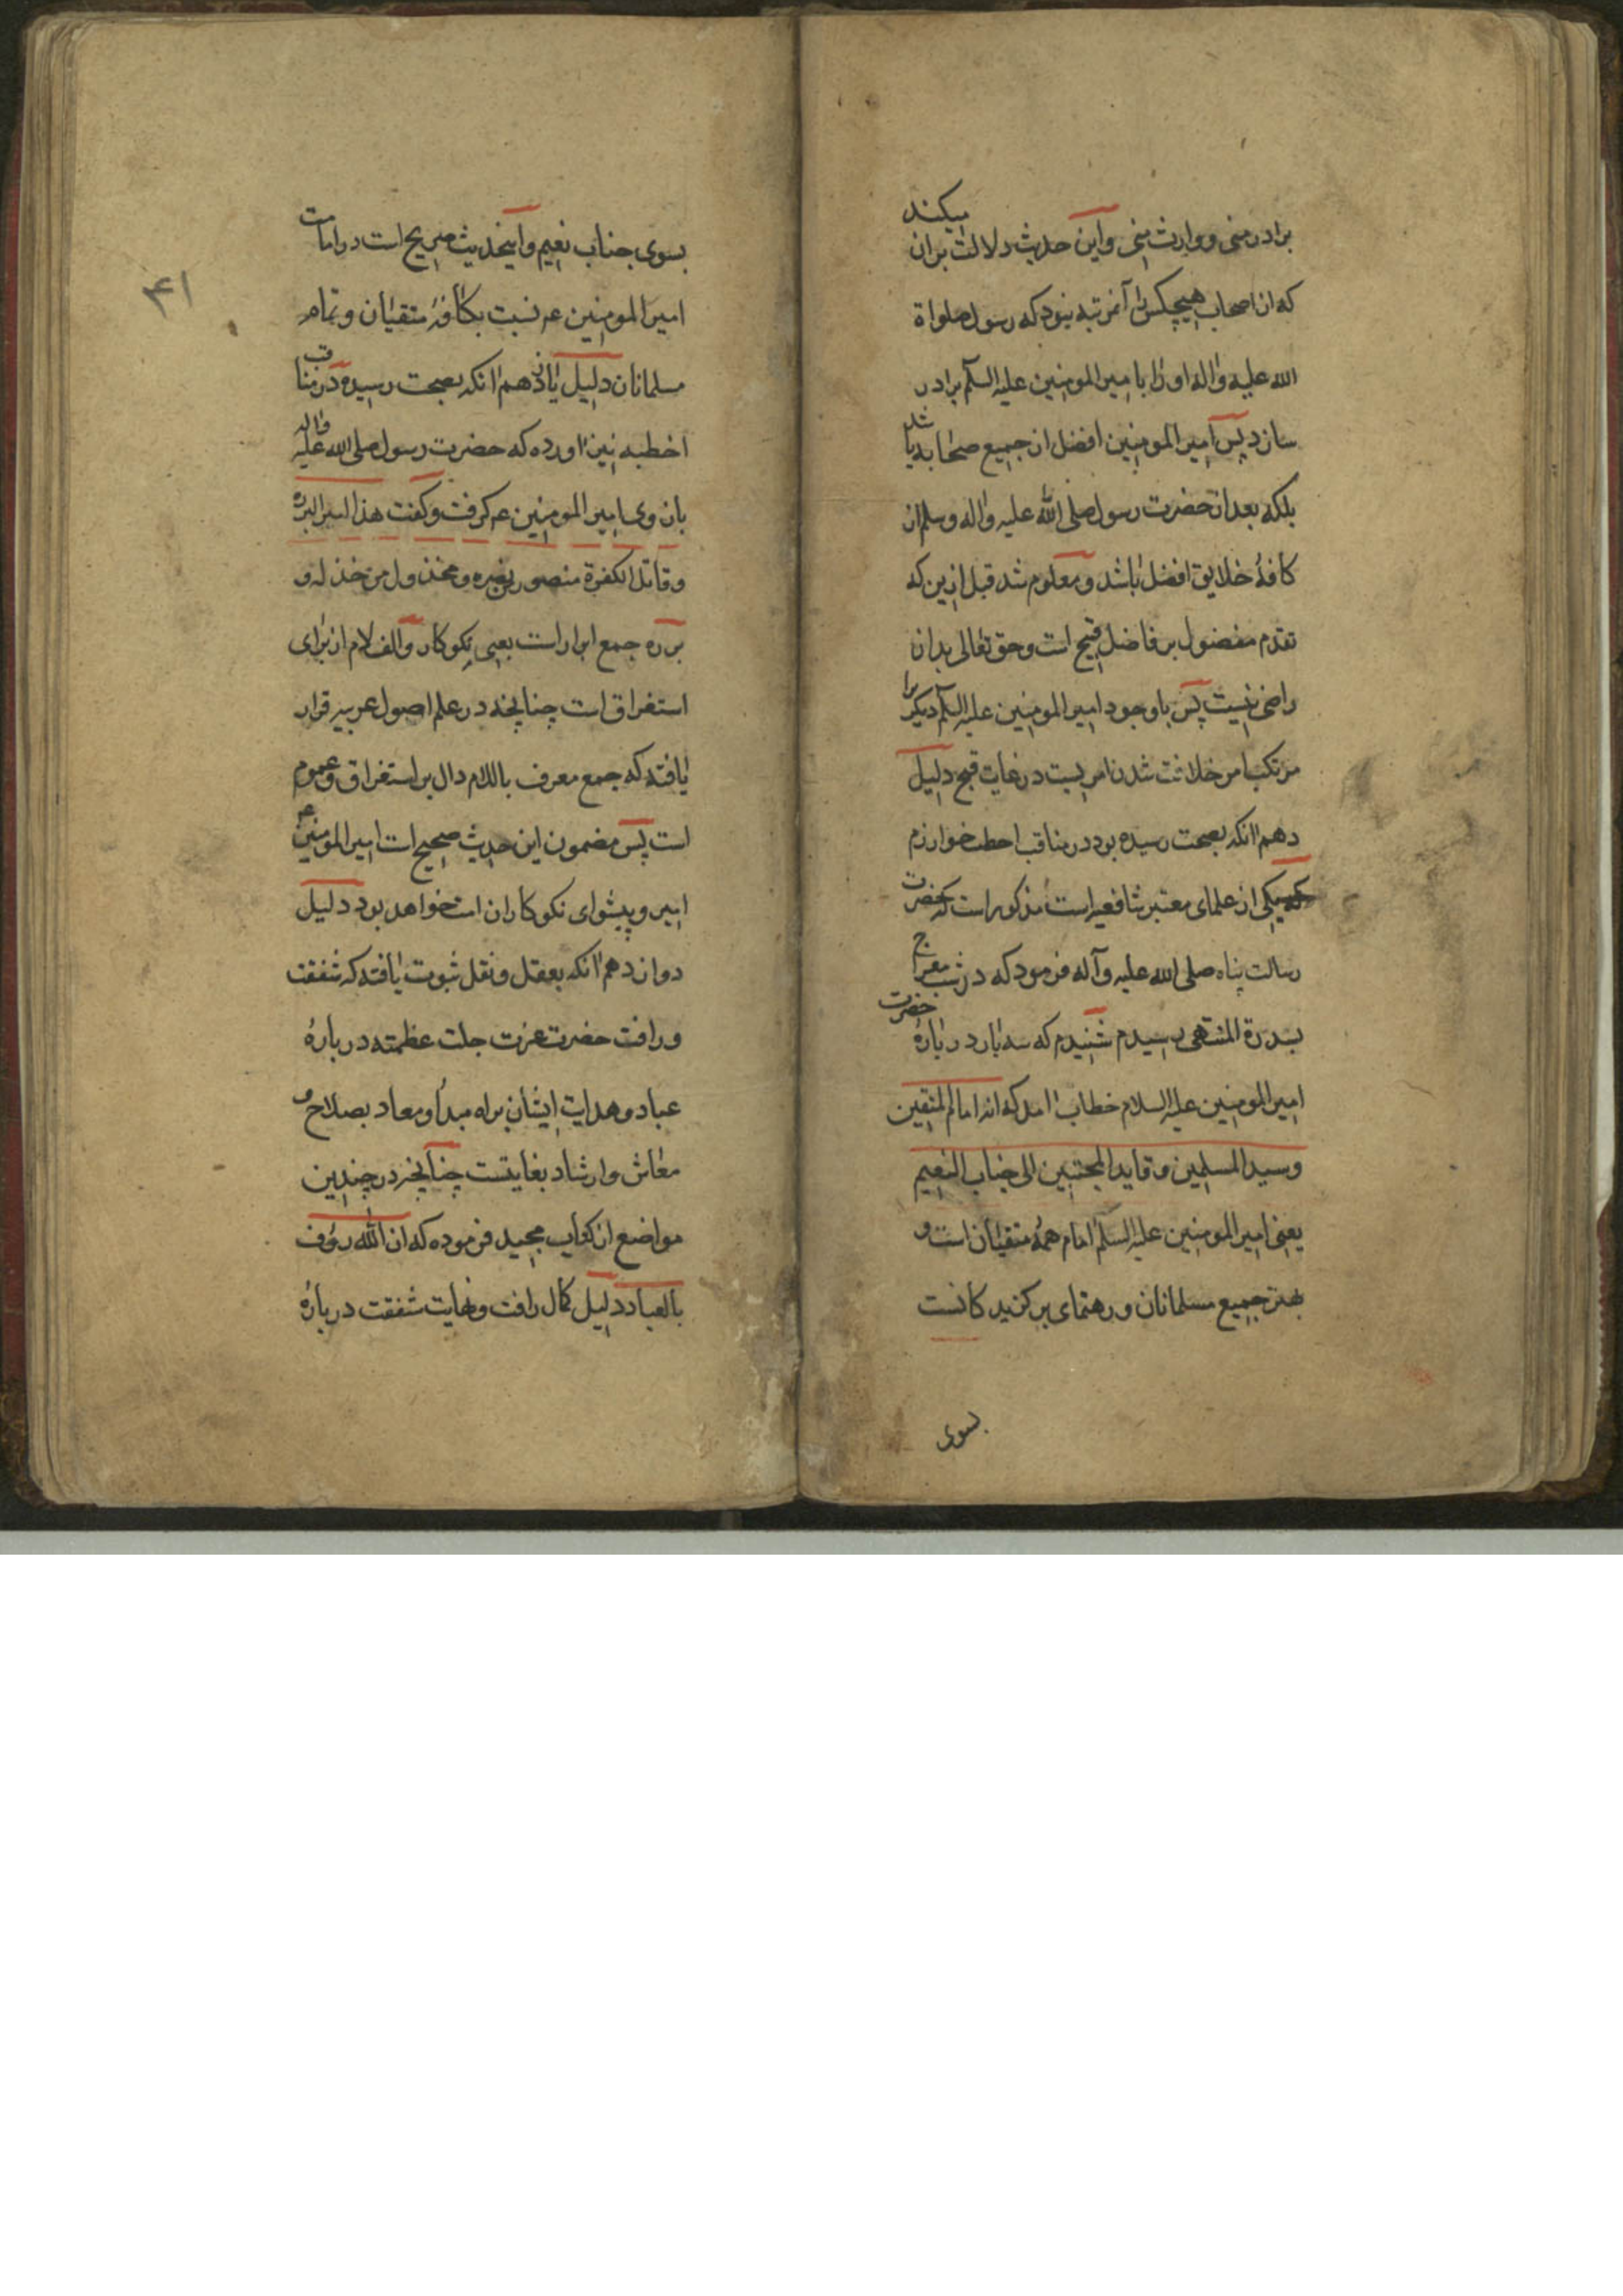 برادر منی و وارث منی و این حدیث دلالت میکند بران
که از اصحاب هیچکس را آنمرتبه نبود که رسول صلواة
الله علیه واله او را با امیر المومنین علیه السلم برادر
سازد پس امیر المومنین افضل از جمیع صحابه باشد
بلکه بعد از حضرت رسول صلی الله علیه واله وسلم از
کافهٔ خلایق افضل باشد و معلوم شد قبل ازین که
تقدم مفضول بر فاضل قبیح است و حق تعالی بدان
راضی نیست پس با وجود امیر المومنین علیه السلم دیگر را
مرتکب امر خلافت شدن امریست در غایت قبح دلیل
دهم انکه بصحت رسیده بود در مناقب اخطب خوارزم
که یکی از علمای معتبر شافعیه است مذکور است که حضرت
رسالت پناه صلی الله علیه وآله فرمود که در شب معراج
بسدرة المنتهی رسیدم شنیدم که سه بار در بارهٔ حضرت
امیر المومنین علیه السلام خطاب امد که انه امام المتقین
وسید المسلمین و قاید المحتبین الی جناب النعیم
یعنی امیر المومنین علیه السلم امام همهٔ متقیان است و
بهتر جمیع مسلمانان و رهنمای برکزیدکانست
بسوی
۴۱
بسوی جناب نعیم و اینحدیث صریح است در امامت
امیر المومنین عم نسبت بکافهٔ متقیان و تمام
مسلمانان دلیل یازدهم انکه بصحت رسیده در مناقب
اخطب نیز اورده که حضرت رسول صلی الله علیه واله
بازوی امیر المومنین عم کرفت و کفت هذا امیر البرره
و قاتل الکفرة منصور من نصره و مخذول من خذله و
برره جمع ابرار است یعنی نکوکار و الف لام از برای
استغراق است چنانچه در علم اصول عربیه قرار
یافته که جمع معرف باللام دال بر استغراق و عموم
است پس مضمون این حدیث صحیح است امیر المومنین عم
امیر و پیشوای نکوکاران است خواهد بود دلیل
دوازدهم انکه بعقل و نقل ثبوت یافته که شفقت
و رافت حضرت عزت جلت عظمته در بارهٔ
عباد و هدایت ایشان براه مبدأ و معاد بصلاح و
معاش و ارشاد بغایتست چنانچه در چندین
مواضع از کتاب مجید فرموده که ان الله رؤف
بالعباد دلیل کمال رافت و نهایت شفقت در بارهٔ